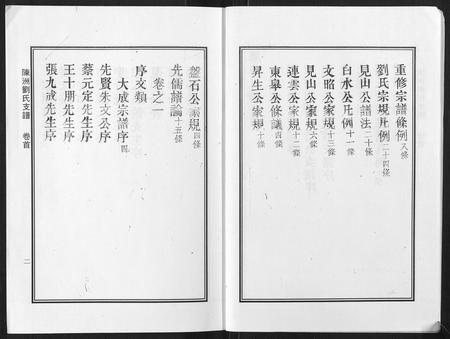 重修宗譜條例八條
劉氏宗規凡例二十四條
見山公譜法二十條
白水公凡例十一條
文昭公家規十三條
見山公家規六條
連雲公家規十二條
東皋公條議十條
昇生公家規十條
盤石公議規四條
先儒譜論十五條
卷之一
序文類
大成宗譜序四
先賢朱文公序
蔡元定先生序
王十朋先生序
張九成先生序
陳洲劉氏支譜 卷首 二